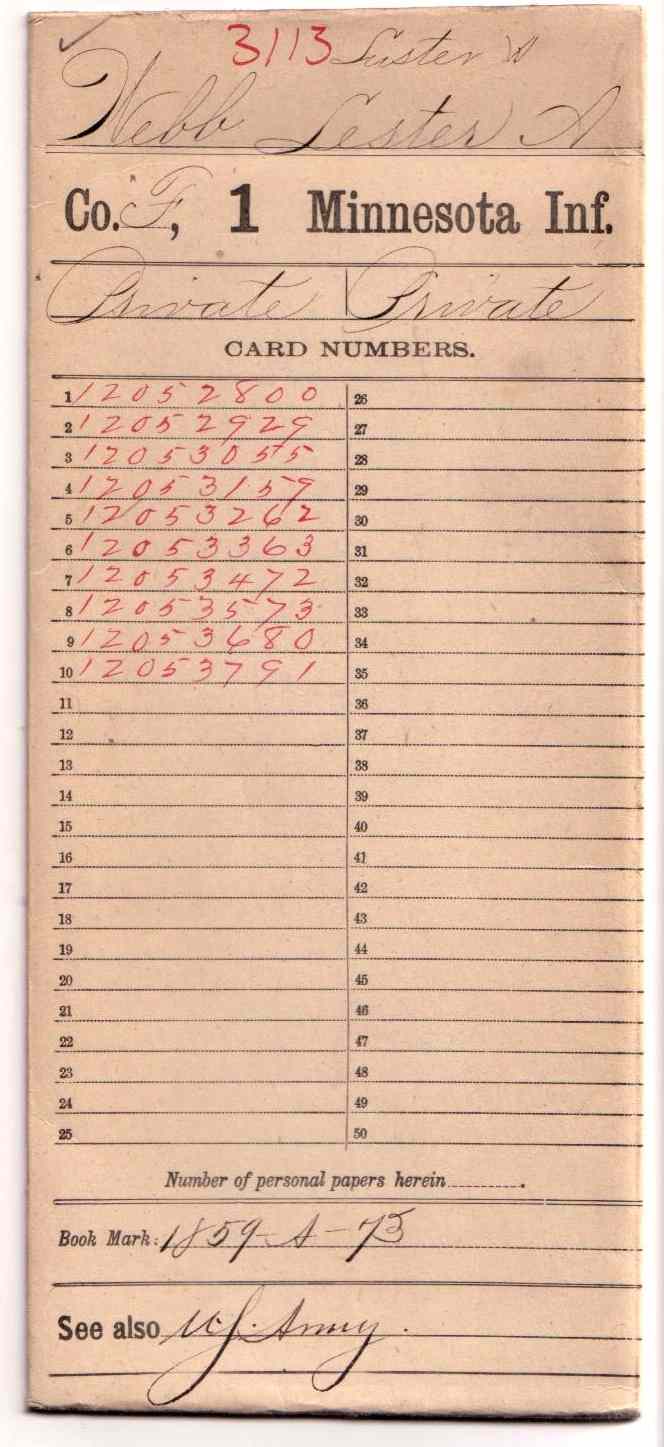 3113 Luster A
Webb Lester A
Co. F, 1 Minnesota Inf.
Private Private
CARD NUMBERS.
1 12052800 26
2 12052929 27
3 12053055 28
4 12053159 29
5 12053262 30
6 12053363 31
7 12053472 32
8 12053573 33
9 12053680 34
10 12053791 35
11 36
12 37
13 38
14 39
15 40
16 41
17 42
18 43
19 44
20 45
21 46
22 47
23 48
24 49
25 50
Number of personal papers herein
Book Mark: 1859-A-73
See also U.S. Army.